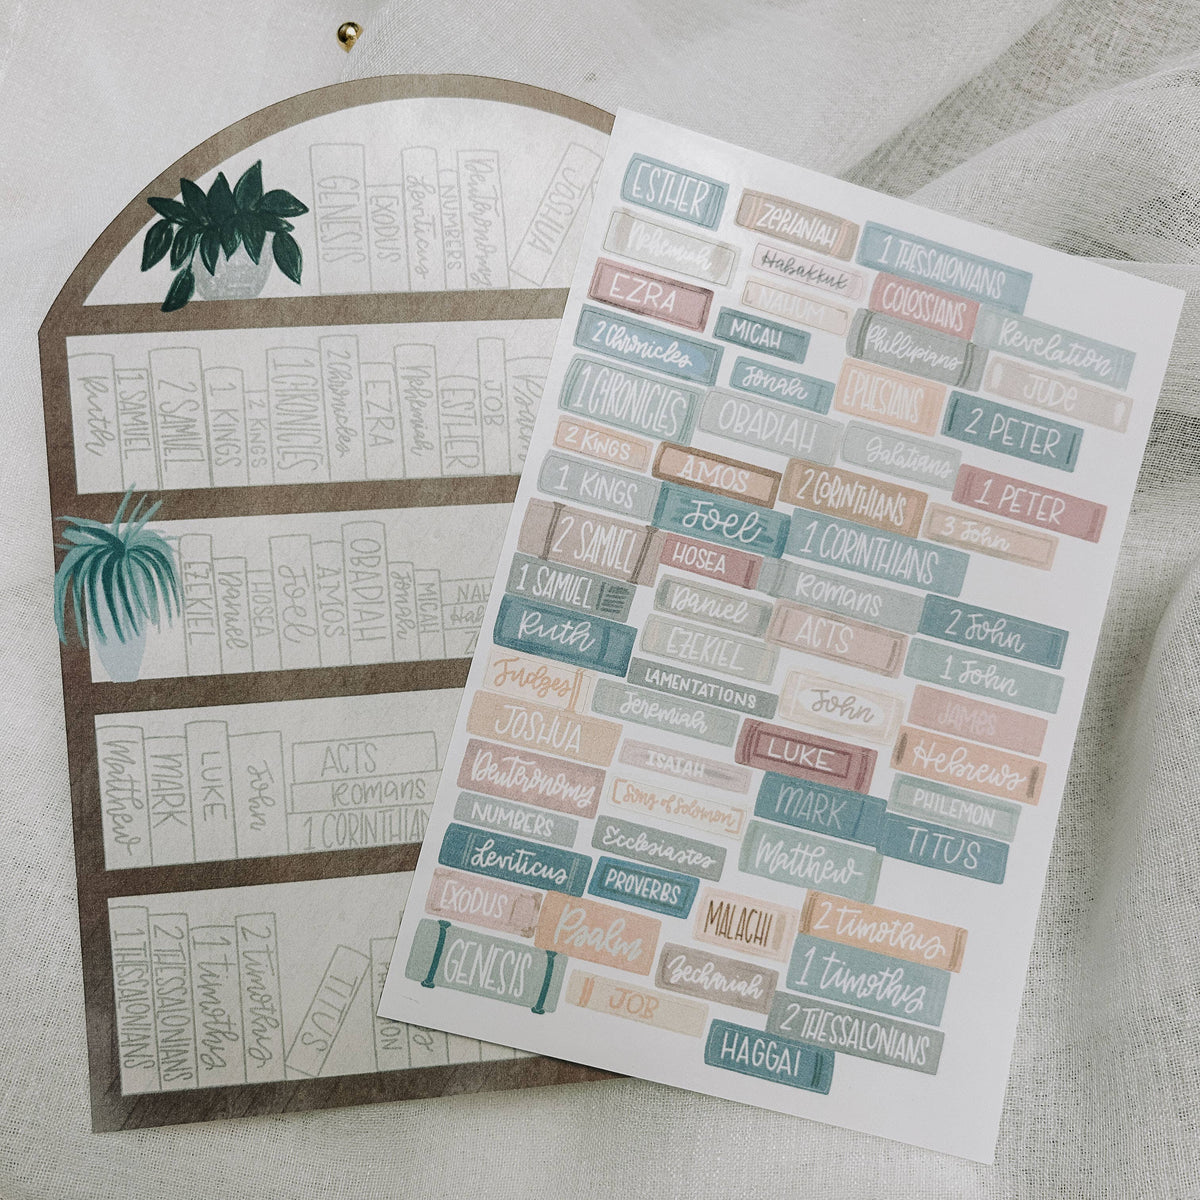 GENESIS
EXODUS
Leviticus
NUMBERS
Deuteronomy
JOSHUA
Ruth
1 SAMUEL
2 SAMUEL
1 KINGS
2 KINGS
1 CHRONICLES
2 Chronicles
EZRA
Nehemiah
ESTHER
JOB
EZEKIEL
Daniel
HOSEA
Joel
AMOS
OBADIAH
Jonah
MICAH
Matthew
MARK
LUKE
John
ACTS
Romans
1 CORINTHIAN
1 THESSALONIANS
2 THESSALONIANS
1 timothy
2 timothy
TITUS
ESTHER
ZEPHANIAH
1 THESSALONIANS
Nehemiah
Habakkuk
EZRA
NAHUM
COLOSSIANS
Revelation
2 Chronicles
MICAH
Phillipians
JUDE
Jonah
1 CHRONICLES
EPHESIANS
2 PETER
OBADIAH
Galatians
2 KINGS
AMOS
2 CORINTHIANS
1 PETER
1 KINGS
Joel
3 John
2 SAMUEL
HOSEA
1 CORINTHIANS
1 SAMUEL
Daniel
Romans
2 John
Ruth
EZEKIEL
ACTS
1 John
Judges
LAMENTATIONS
John
JAMES
Jeremiah
JOSHUA
LUKE
Hebrews
ISAIAH
Deuteronomy
Song of Solomon
MARK
PHILEMON
NUMBERS
Ecclesiastes
Matthew
TITUS
Leviticus
PROVERBS
EXODUS
MALACHI
2 timothy
Psalm
GENESIS
Zechariah
1 timothy
JOB
2 THESSALONIANS
HAGGAI